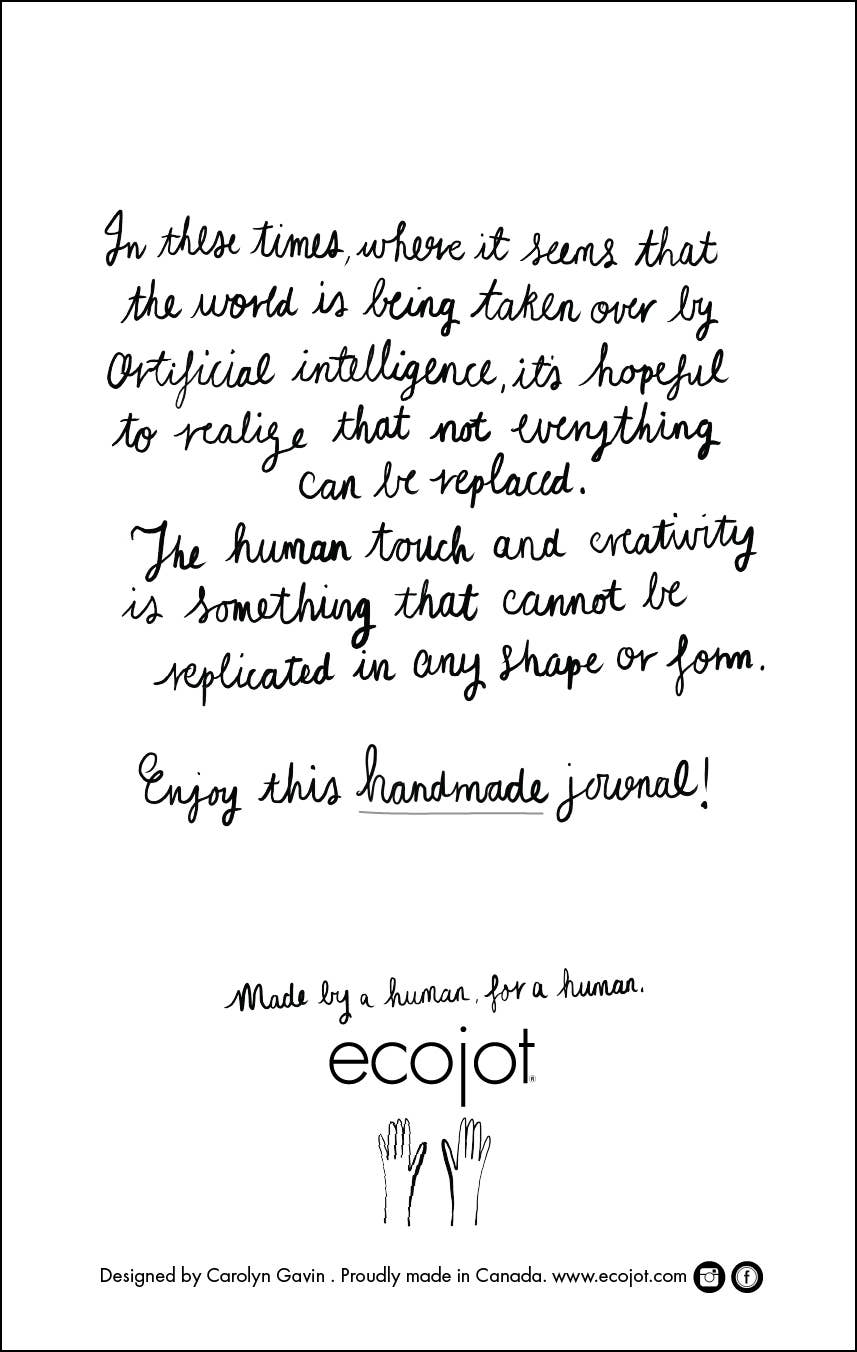 In these times, where it seems that
the world is being taken over by
Artificial intelligence, it's hopeful
to realize that not everything
can be replaced.
The human touch and creativity
is something that cannot be
replicated in any shape or form.
Enjoy this handmade journal!
Made by a human, for a human.
ecojot®
Designed by Carolyn Gavin . Proudly made in Canada. www.ecojot.com